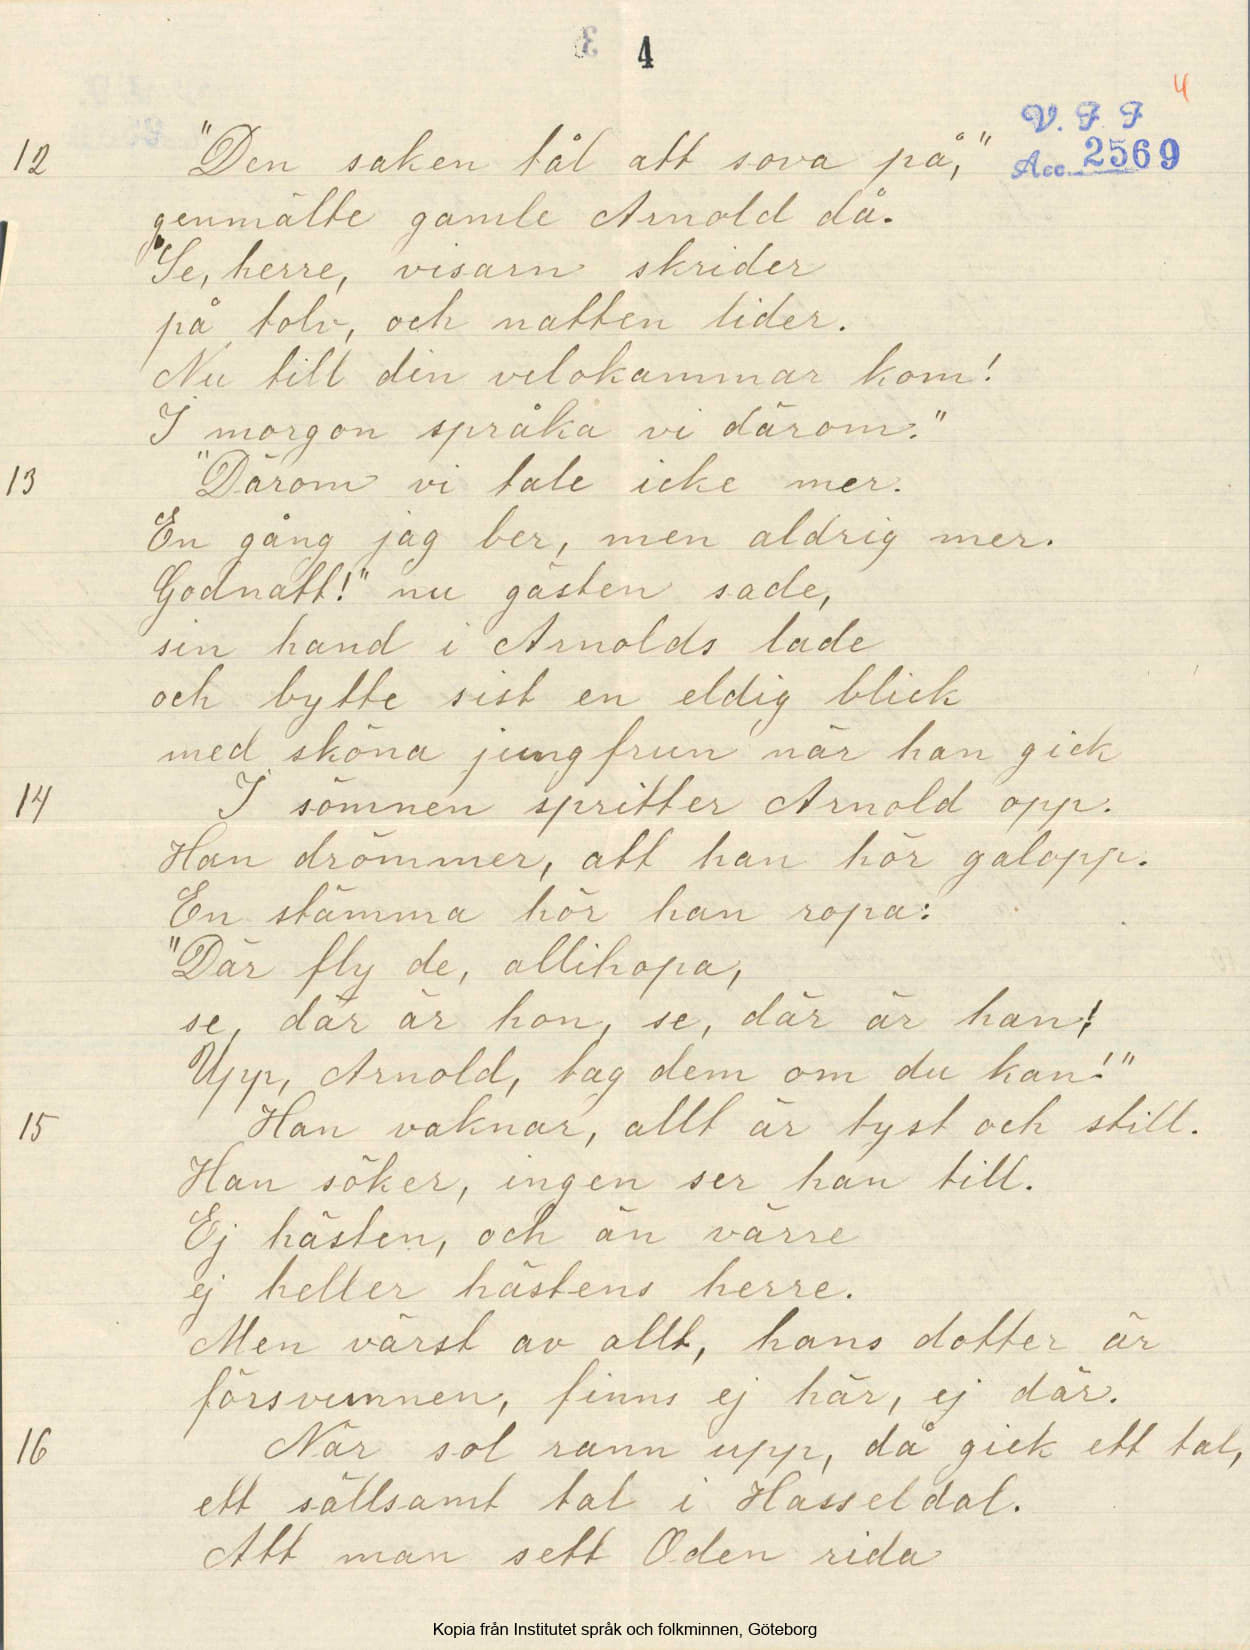 3 4
4
V. F. F
Acc. 2569
12 "Den saken tål att sova på,"
genmälte gamle Arnold då.
"Se, herre, visarn skrider
på tolv, och natten lider.
Nu till din vilokammar kom!
I morgon språka vi därom."
13 "Därom vi tale icke mer.
En gång jag ber, men aldrig mer.
Godnatt!" nu gästen sade,
sin hand i Arnolds lade
och bytte sist en eldig blick
med sköna jungfrun när han gick
14 I sömnen spritter Arnold opp.
Han drömmer, att han hör galopp.
En stämma hör han ropa:
"Där fly de, allihopa,
se, där är hon, se, där är han!
Upp, Arnold, tag dem om du kan!"
15 Han vaknar, allt är tyst och still.
Han söker, ingen ser han till.
Ej hästen, och än värre
ej heller hästens herre.
Men värst av allt, hans dotter är
försvunnen, finns ej här, ej där.
16 När sol rann upp, då gick ett tal,
ett sällsamt tal i Hasseldal.
Att man sett Oden rida
Kopia från Institutet språk och folkminnen, Göteborg